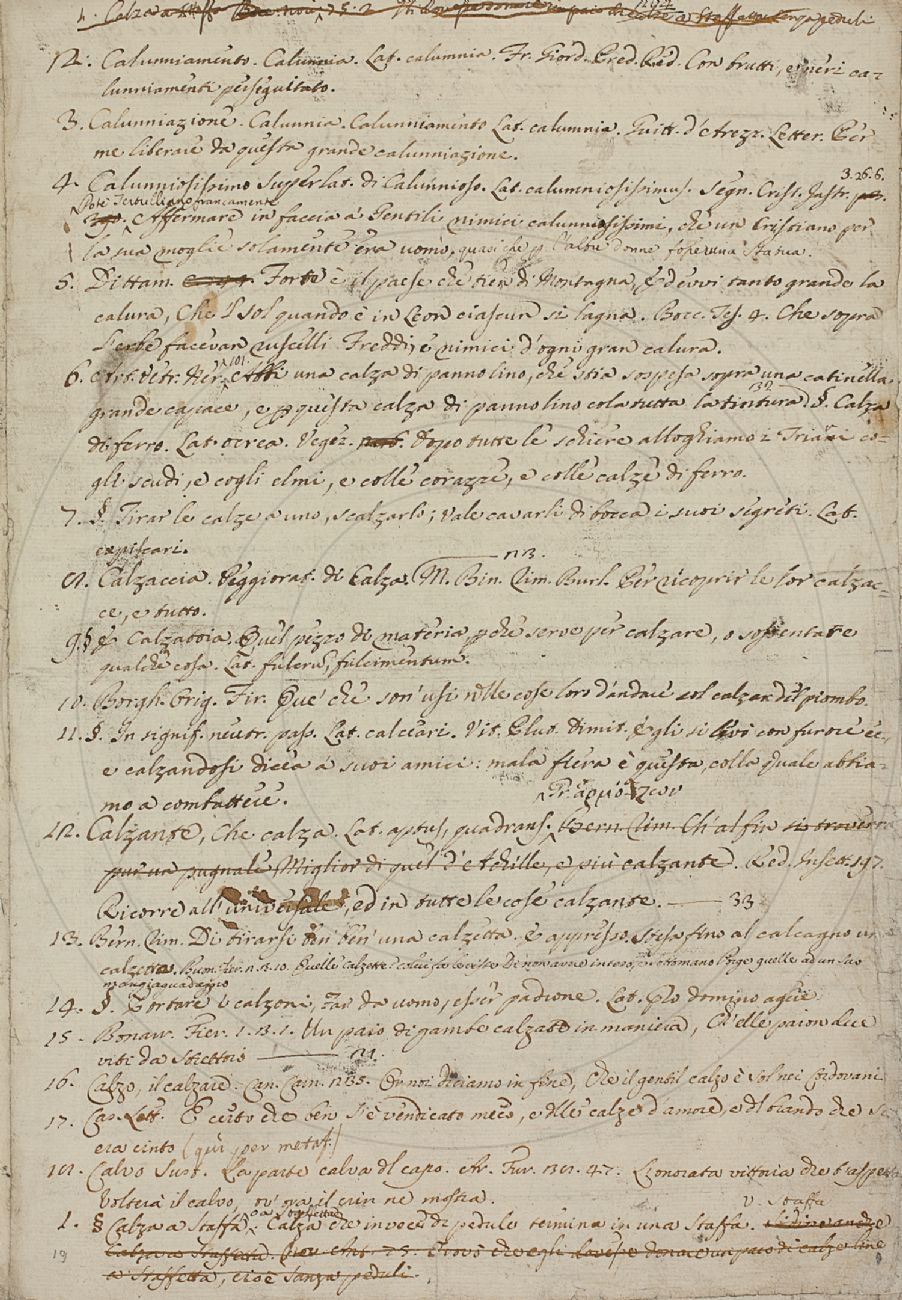 1. Calza a staffa Bocc. nov. 75. 2
2. Calunniamento. Calunnia. Lat. calumnia. Fr. Giord. Pred. Red. Con brutti, e neri ca-
lunniamenti perseguitato.
3. Calunniazione. Calunnia. Calunniamento Lat. calumnia. Guitt. d'Arezz. Letter. Per
me liberare da questa grande calunniazione.
4. Calunniosissimo Superlat. di Calunnioso. Lat. calumniosissimus. Segn. Crist. Instr. 3. 26. 6.
Potè Tertulliano francamente
Affermare in faccia a' Gentili nimici calunniosissimi, che un Cristiano per
la sua moglie solamente era uomo, quasiche p l'altre donne fosse una statua.
5. Dittam. Forte è il paese che tien di Montagna, E dèvvi tanto grande la
calura, Che 'l sol quando è in Leon ciascun si lagna. Bocc. Tes. 4. Che sopra
l'erbe facevan ruscelli Freddi, e nimici d'ogni gran calura.
6. Art. Vetr. Ner. 101. Abbi una calza di panno lino, che stia sospesa sopra una catinella
grande capace, e p questa calza di panno lino cola tutta la tintura. §. Calza
di ferro. Lat. ocrea. Vegez. 39 Dopo tutte le schiere alloghiamo i Triarj co-
gli scudi, e cogli elmi, e colle corazze, e colle calze di ferro.
7. §. Tirar le calze a uno, scalzarlo; vale cavarli di bocca i suoi segreti. Lat.
expiscari.
8. Calzaccia. Peggiorat. di Calza. M. Bin. Rim. Burl. Per ricoprir le lor calzac-
ce, e tutto.
9. § Calzatoia. Quel pezzo di materia, che serve per calzare, o sostentare
qualche cosa. Lat. fulcrum, fulcimentum.
10. Borgh. Orig. Fir. Que' che son' usi nelle cose loro d'andare col calzar del piombo.
11. §. In signif. neutr. pass. Lat. calceari. Vit. Plut. Dimit. Egli si levò con furore ec.
e calzandosi dicea a' suoi amici: mala fiera è questa, colla quale abbia-
mo a combattere.
12. Calzante, Che calza. Lat. aptus, quadrans. Bern. Rim. Ch' al fin si troverra
pur un pugnale Miglior di quel d'Achille, e più calzante. Red. Insett. 197.
Ricorre all' universale, ed in tutte le cose calzante. 33
13. Bern. Rim. Di tirarsi ben ben' una calzetta. E appresso. Stesa fino al calcagno una
calzetta.
mangiaguadagno
14. §. Portare i calzoni, Far da uomo, esser padrone. Lat. pro domino agere
15. Bonarr. Fier. 1. 3. 1. Un paio di gambe calzate in maniera, Ch'elle paion due
viti da strettoio
16. Calzo, il calzare. Can. Carn. 135. Or noi diciamo in fine, Che il gentil calzo è sol nei Cordovani.
17. Cas. Lett. E certo che ben s'è vendicato meco, e delle calze d'amore, e del brando che s'
era cinto (quì per metaf.)
18. Calvo Sust. La parte calva del capo. Ar. Fur. 38. 47. L'onorata vittoria che t'aspetta
volterà il calvo, ov' ora il crin ne mostra.
1. § Calza a Staffa, o a Staffetta. Calza che in vece di pedule termina in una Staffa. v. Staffa
Si dice anche
Calza a Staffetta. Nov. Ant. 75. Trovò che egli dovesse donare un paio di calze line
a Staffetta, cioè sanza peduli.
19